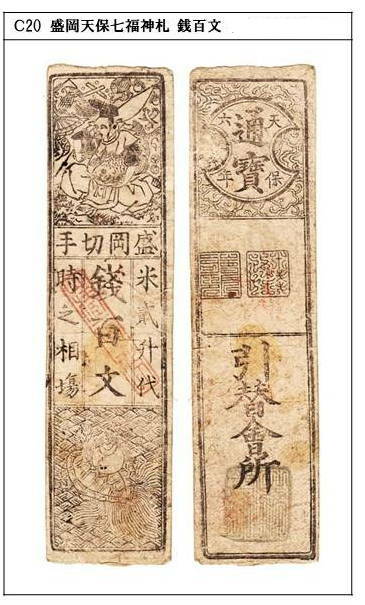 C20 盛岡天保七福神札 銭百文
盛岡切手
米貳升代
銭百文
時之相場
通寳
天保
六年
引替會所